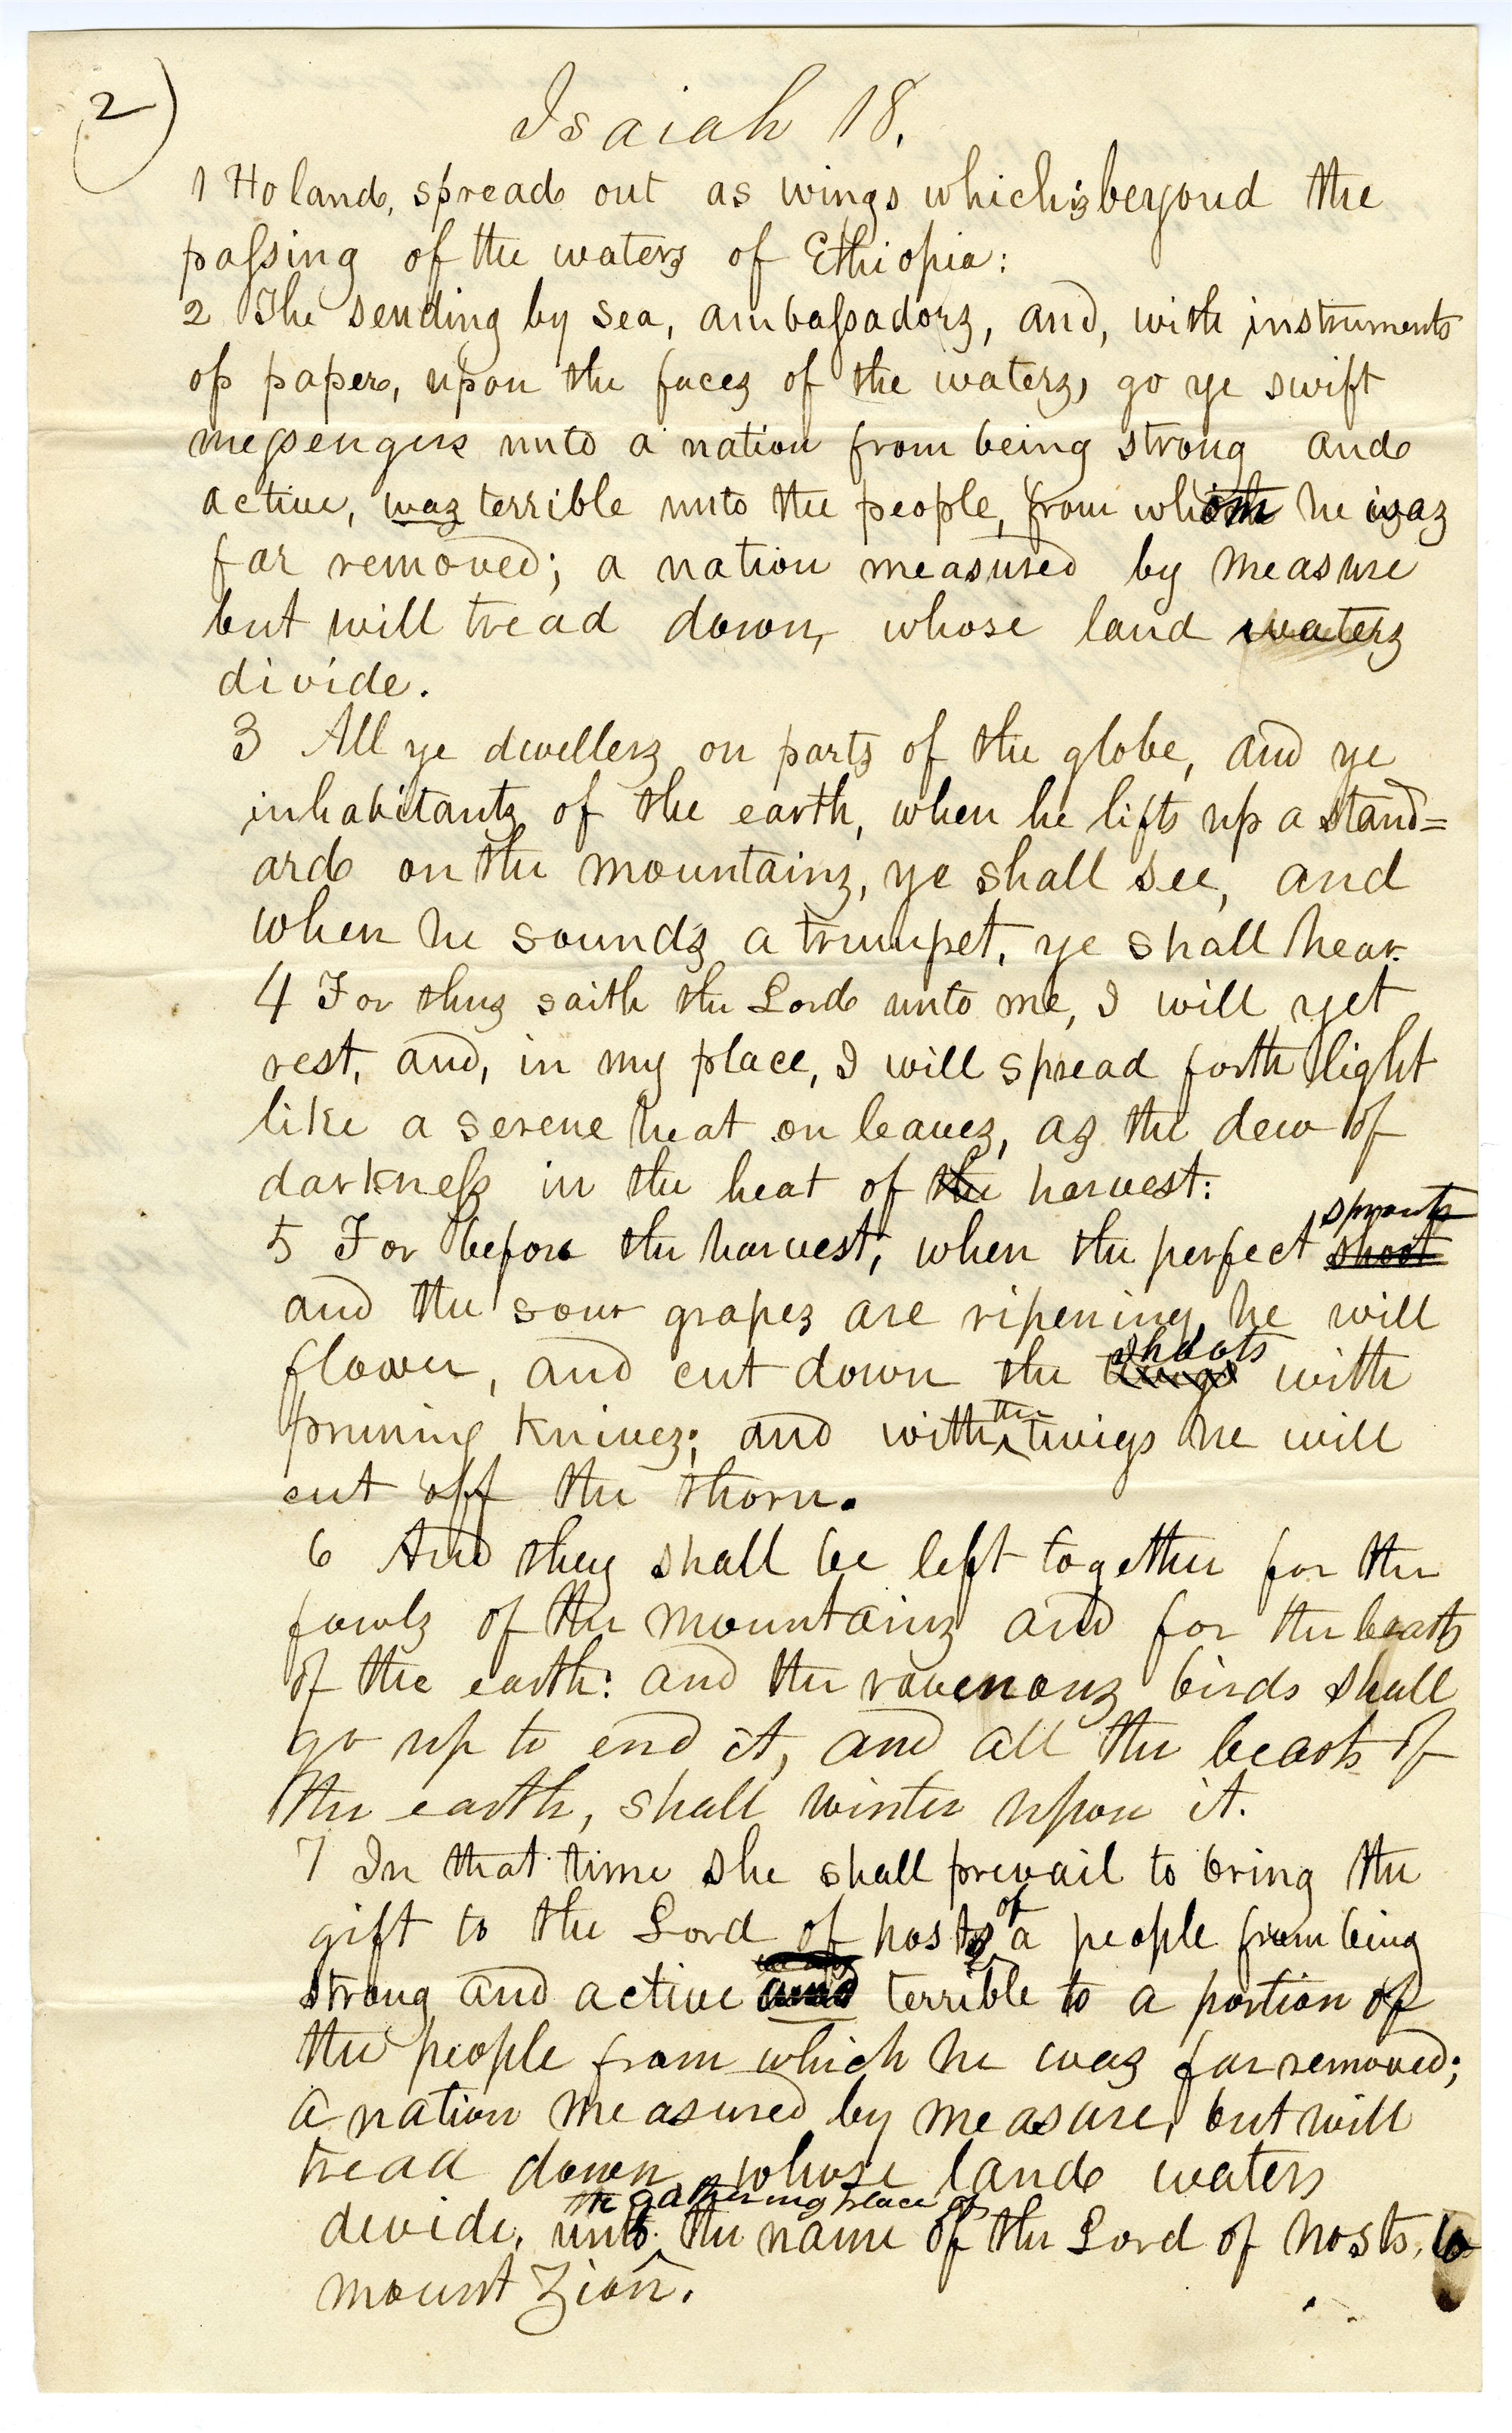 2)
Isaiah 18.
1 Ho land, spread out as wings which is beyond the
passing of the waters of Ethiopia:
2 The sending by sea, ambassadors, and, with instruments
of paper, upon the faces of the waters, go ye swift
messengers unto a nation from being strong and
active, was terrible unto the people, from whom he was
far removed; a nation measured by measure
but will tread down, whose land waters
divide.
3 All ye dwellers on parts of the globe, and ye
inhabitants of the earth, when he lifts up a stand=
ard on the mountains, ye shall see, and
when he sounds a trumpet, ye shall hear.
4 For thus saith the Lord unto me, I will yet
rest, and, in my place, I will spread forth light
like a serene heat on leaves, as the dew of
darkness in the heat of the harvest:
sprouts
5 For before the harvest, when the perfect shoot
and the sour grapes are ripening, he will
shoots
flower, and cut down the twigs with
the
pruning knives; and with twigs he will
cut off the thorn.
6 And they shall be left together for the
fowls of the mountains and for the beasts
of the earth: and the ravenous birds shall
go up to end it, and all the beasts of
the earth, shall winter upon it.
7 In that time she shall prevail to bring the
of
gift to the Lord of hosts a people from being
strong and active and terrible to a portion of
the people from which he was far removed;
a nation measured by measure, but will
tread down, whose land waters
the gathering place of
divide, unto the name of the Lord of hosts, to
mount Zion.